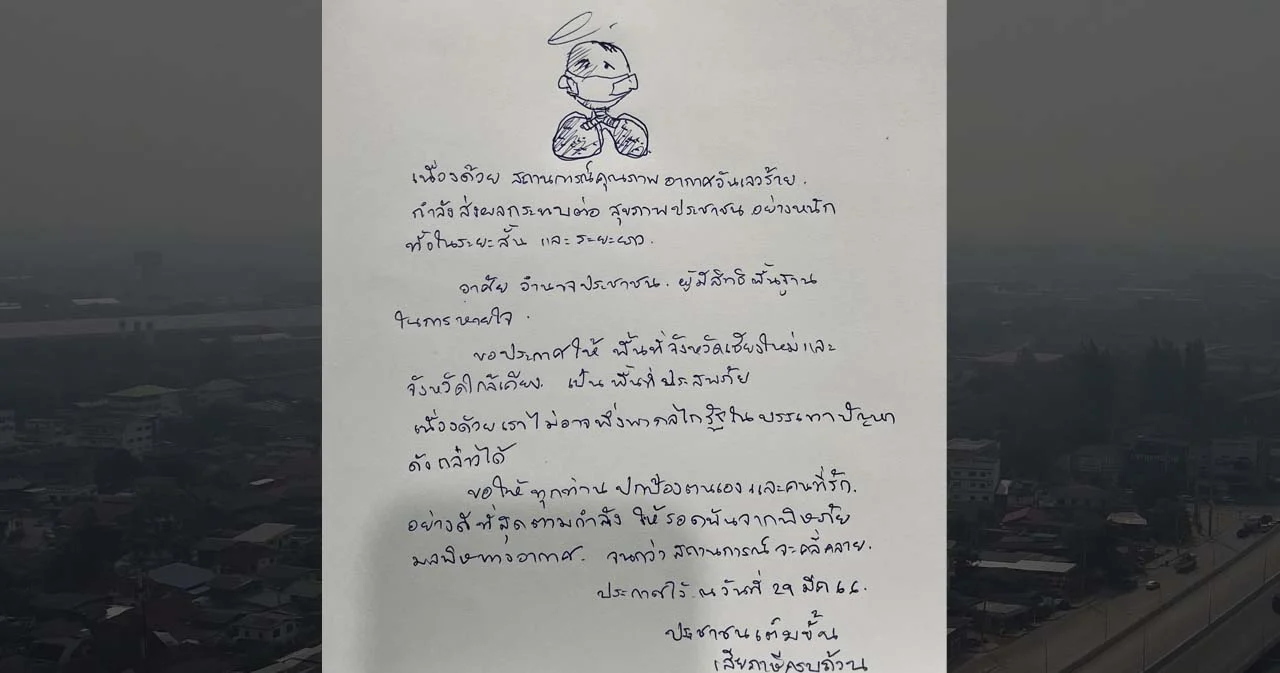 เนื่องด้วย สถานการณ์คุณภาพอากาศอันเลวร้าย.
กำลังส่งผลกระทบต่อ สุขภาพประชาชน อย่างหนัก
ทั้งในระยะสั้น และ ระยะยาว.
อาศัย อำนาจประชาชน. ผู้มีสิทธิพื้นฐาน
ในการหายใจ.
ขอประกาศให้ พื้นที่จังหวัดเชียงใหม่และ
จังหวัดใกล้เคียง. เป็นพื้นที่ประสพภัย
เนื่องด้วยเราไม่อาจพึ่งพากลไกรัฐในบรรเทาปัญหา
ดังกล่าวได้
ขอให้ทุกท่าน ปกป้องตนเองและคนที่รัก.
อย่างดีที่สุดตามกำลัง ให้รอดพ้นจากพิษภัย
มลพิษทางอากาศ. จนกว่า สถานการณ์จะคลี่คลาย.
ประกาศไว้ ณ วันที่ 29 มีค 66.
ประชาชนเต็มขั้น
เสียภาษีครบถ้วน